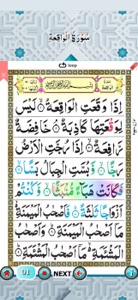 سُورَةُ الْوَاقِعَة
loop
إِذَا وَقَعَتِ الْوَاقِعَةُ ۝ لَيْسَ
لِوَقْعَتِهَا كَاذِبَةٌ ۝ خَافِضَةٌ
رَّافِعَةٌ ۝ إِذَا رُجَّتِ الْأَرْضُ
رَجًّا ۝ وَّبُسَّتِ الْجِبَالُ بَسًّا ۝
فَكَانَتْ هَبَاءً مُّنْبَثًّا ۝ وَّكُنْتُمْ
أَزْوَاجًا ثَلَاثَةً ۝ فَأَصْحٰبُ الْمَيْمَنَةِ
مَا أَصْحٰبُ الْمَيْمَنَةِ ۝ وَأَصْحٰبُ
الْمَشْئَمَةِ مَا أَصْحٰبُ الْمَشْئَمَةِ
01
NEXT